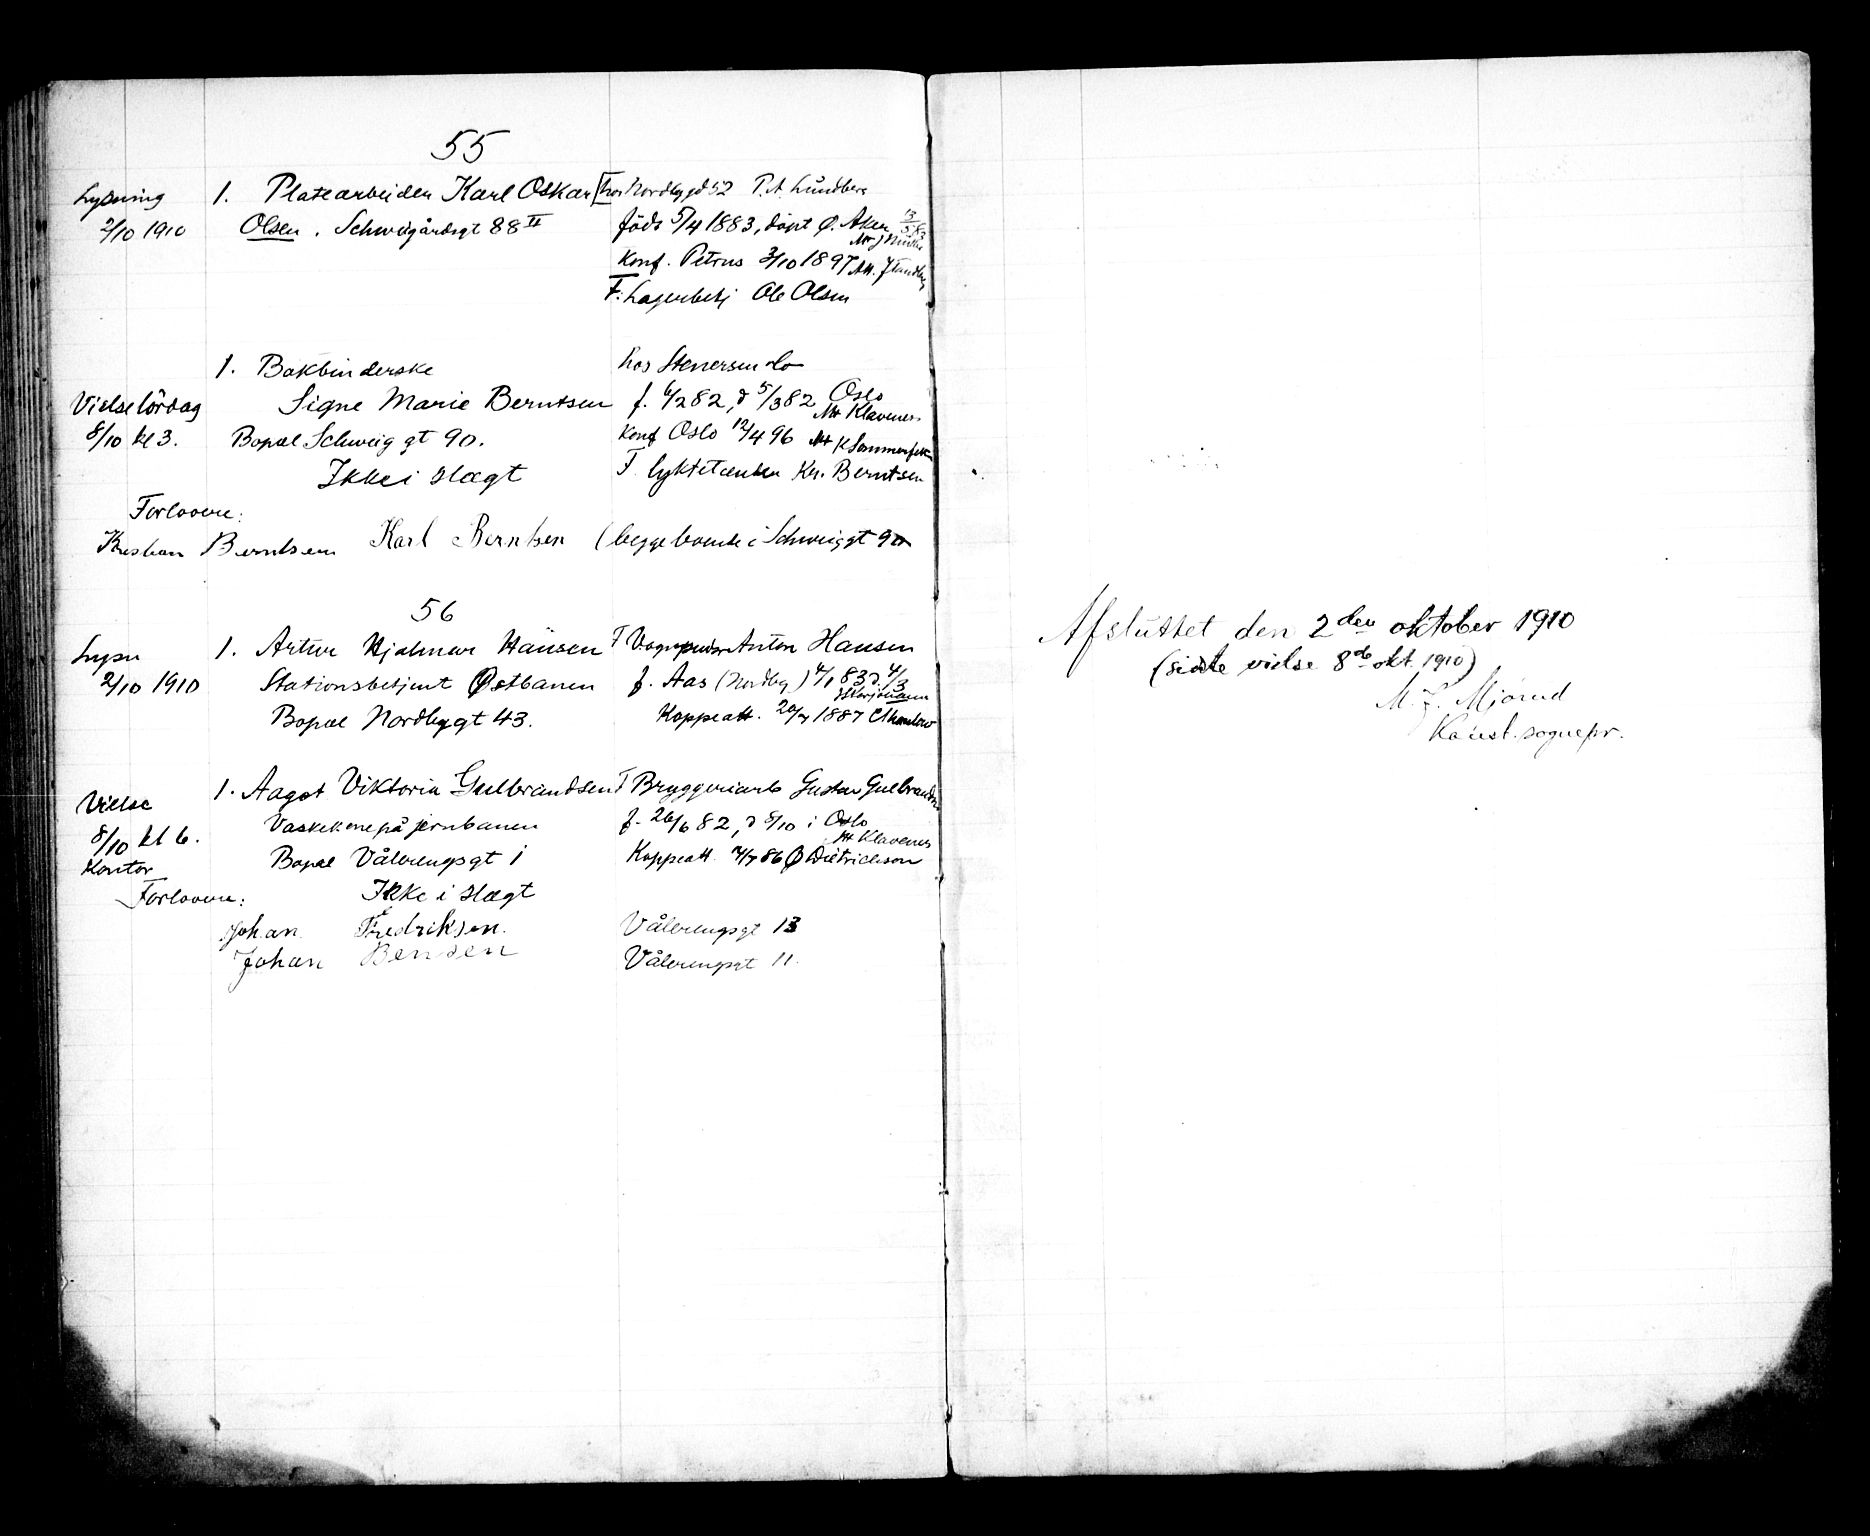 55
Lysning 1. Platearbeider Karl Oskar hos Nordbygd 52 P. A. Lundberg
2/10 1910 Olsen. Schweigårdsgt 88 II föds 5/4 1883, döpt Ø. Aker 13/5 83
Konf. Petrus 3/10 1897 Att.
F. Lagerbetj Ole Olsen
1. Bokbinderske hos Stenersen do
Vielse lördag Signe Marie Berntsen f. 6/2 82, d 5/3 82 Oslo
Att Klavenes
8/10 kl 3. Bopæl Schweiggt 90. Konf Oslo 12/4 96 Att K Sommerfelt
Ikke i slægt F. lyktetænder Kr. Berntsen
Forlovere:
Kristian Berntsen Karl Berntsen (begge boende i Schweiggt 90
56
Lysn 1. Artur Hjalmar Hansen F Anton Hansen
2/10 1910 Stationsbetjent Østbanen f. Aas (Nordby) 4/1 83 d. 4/3
Bopæl Nordbygt 43. Koppeatt. 20/7 1887
Vielse 1. Aagot Viktoria Gulbrandsen F Bryggeriarb Gustav Gulbrandsen
8/10 kl 6. Vaskekone på jernbanen f. 26/6 82, d 8/10 i Oslo
Att Klavenes
Kontor Bopæl Vålerengsgt 1 Koppeatt. 4/7 86 Ø Dietrichson
Forlovere: Ikke i slægt
Johan Fredriksen. Vålerengsgt 13
Johan Bensen Vålerengsgt 11.
Afsluttet den 2den oktober 1910
(sidste vielse 8de okt. 1910)
M. J. Mjørud
Konst. sognepr.